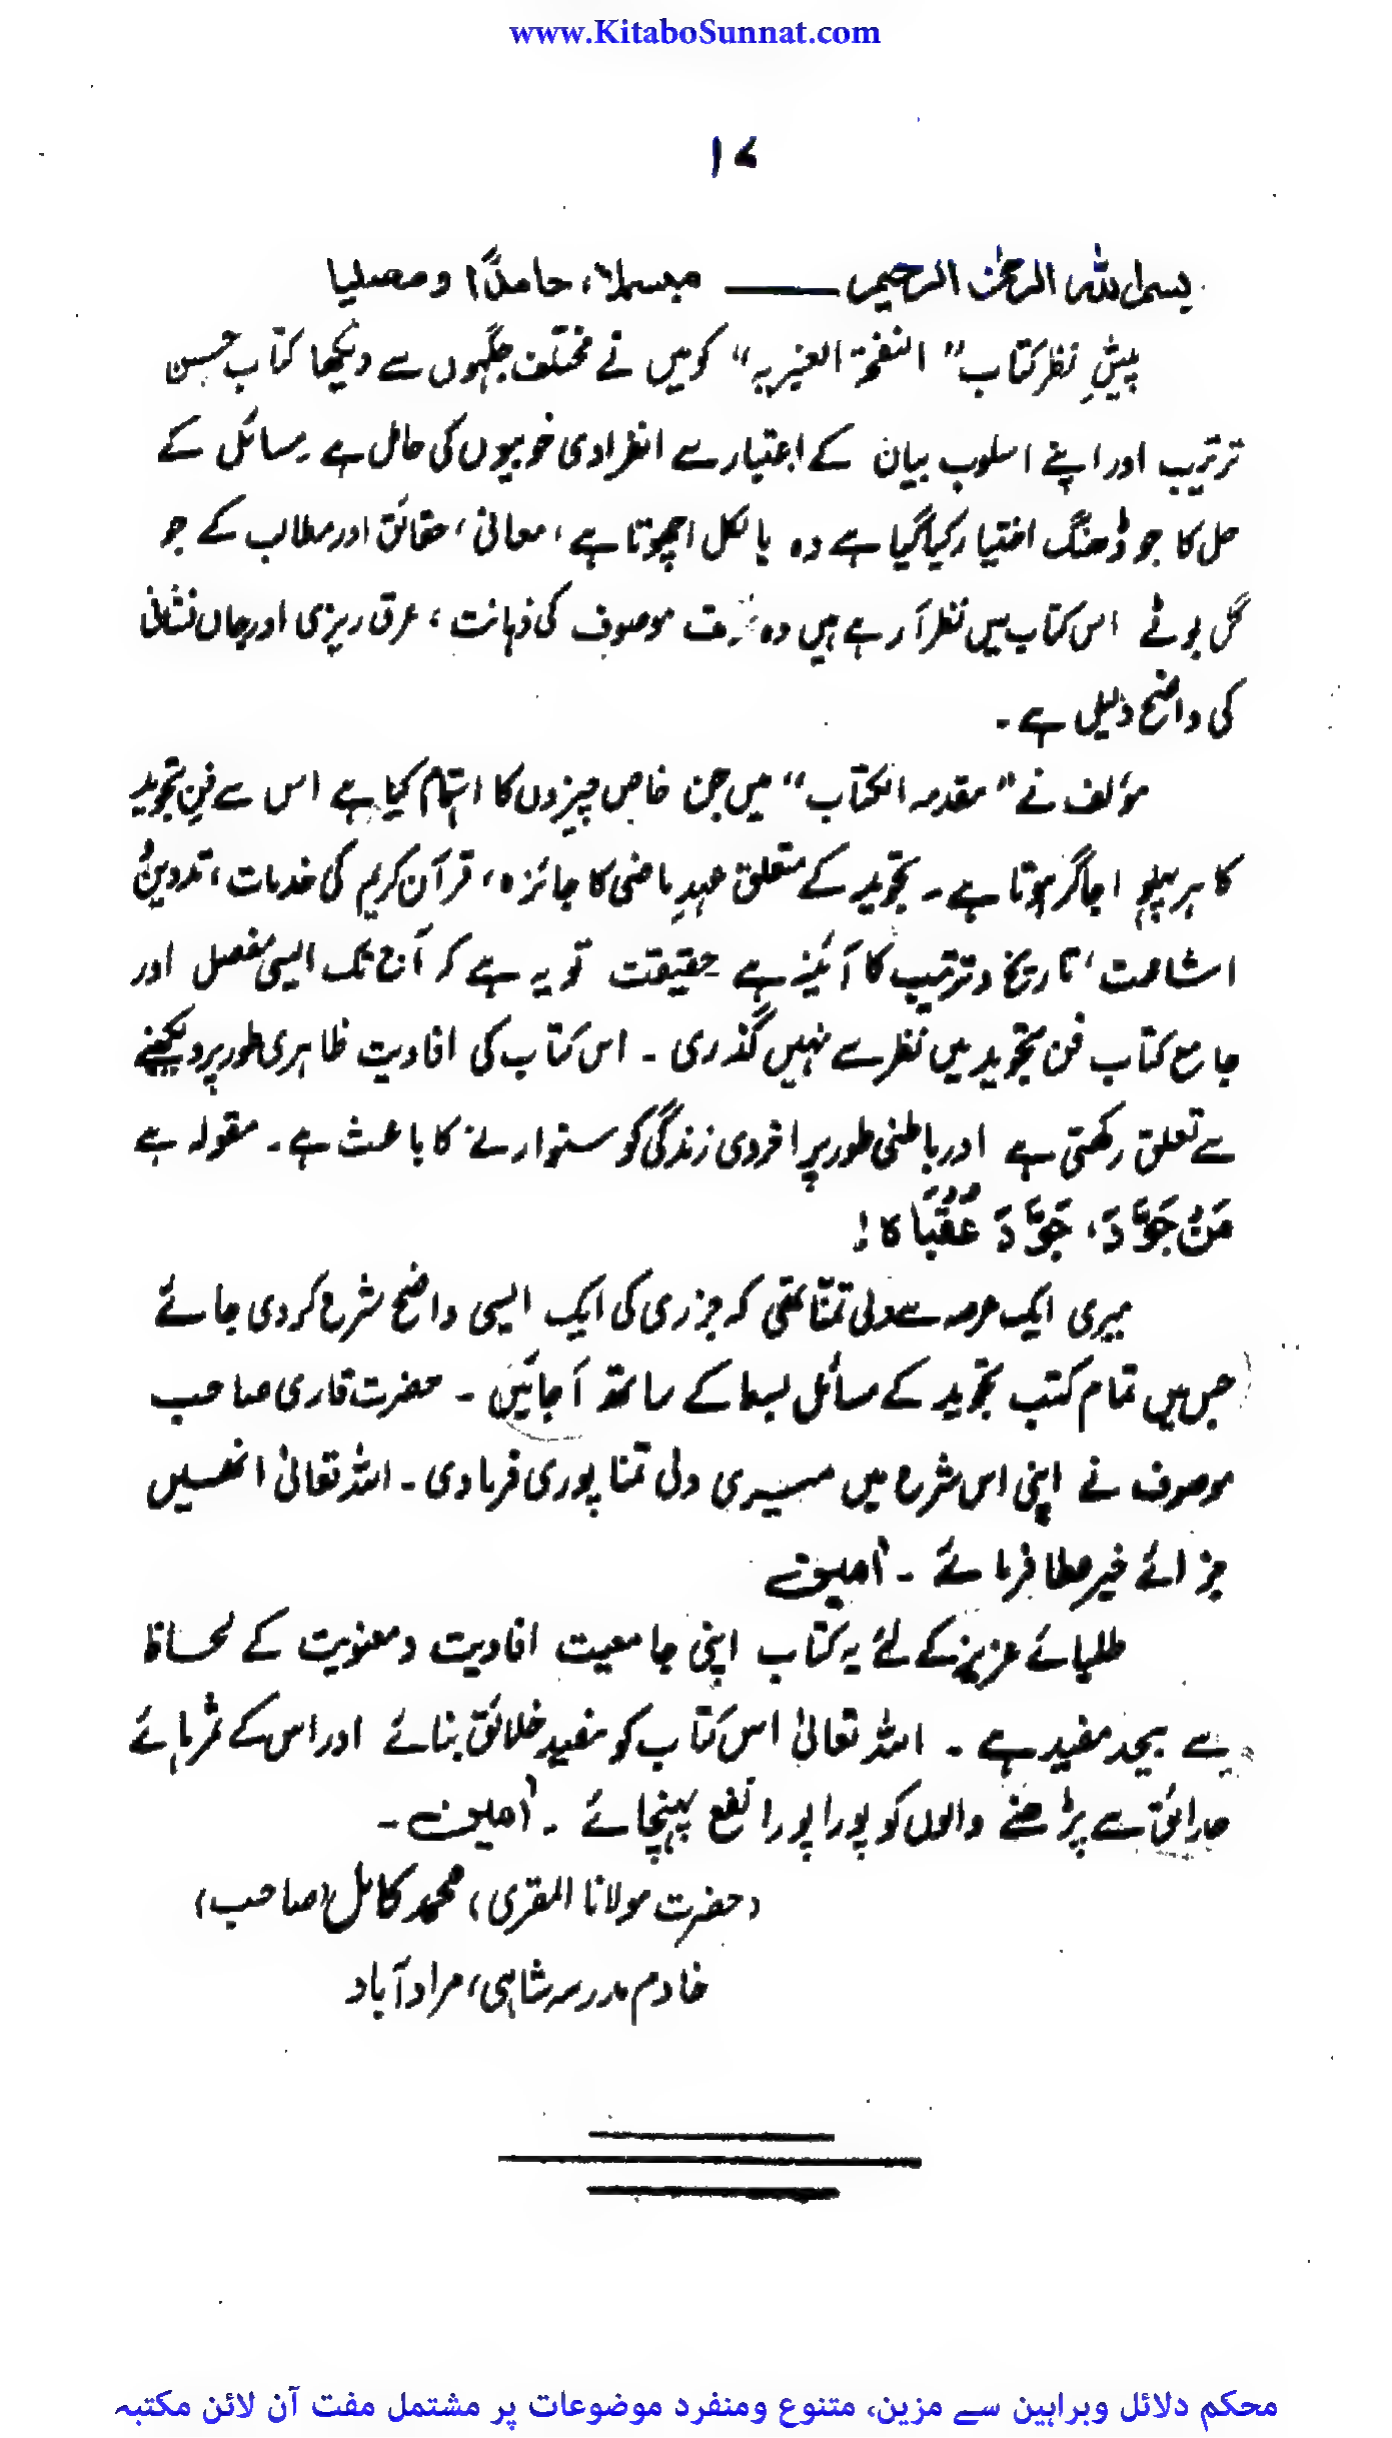 www.KitaboSunnat.com
۱۷
بسم اللہ الرحمٰن الرحیم ــــــ مبسملا، حامدًا ومصلیا
پیشِ نظر کتاب "النفحۃ العنبریہ" کو میں نے مختلف جگہوں سے دیکھا کتاب حسن
ترتیب اور اپنے اسلوب بیان کے اعتبار سے انفرادی خوبیوں کی حامل ہے ۔ مسائل کے
حل کا جو ڈھنگ اختیار کیا گیا ہے وہ بالکل اچھوتا ہے، معانی، حقائق اور مطالب کے جو
گل بوٹے اس کتاب میں نظر آ رہے ہیں وہ موصوف کی ذہانت، عرق ریزی اور جاں فشانی
کی واضح دلیل ہے ۔
مؤلف نے "مقدمہ الکتاب" میں جن خاص چیزوں کا اہتمام کیا ہے اس سے فنِ تجوید
کا ہر پہلو اجاگر ہوتا ہے ۔ تجوید کے متعلق عہدِ ماضی کا جائزہ، قرآن کریم کی خدمات، تدوین
اشاعت، تاریخ و ترتیب کا آئینہ ہے حقیقت تو یہ ہے کہ آج تک ایسی مفصل اور
جامع کتاب فن تجوید میں نظر سے نہیں گذری ۔ اس کتاب کی افادیت ظاہری طور پر دیکھنے
سے تعلق رکھتی ہے اور باطنی طور پر اخروی زندگی کو سنوارنے کا باعث ہے ۔ مقولہ ہے
مَنْ جَوَّدَ، جَوَّدَ عُقْبَاہ!
میری ایک عرصہ سے دلی تمنّا تھی کہ جزری کی ایک ایسی واضح شرح کر دی جائے
جس میں تمام کتب تجوید کے مسائل بسط کے ساتھ آ جائیں ۔ حضرت قاری صاحب
موصوف نے اپنی اس شرح میں میری دلی تمنا پوری فرما دی ۔ اللہ تعالیٰ انھیں
جزائے خیر عطا فرمائے ۔ آمین
طلبائے عزیز کے لئے یہ کتاب اپنی جامعیت افادیت و معنویت کے لحاظ
سے بیحد مفید ہے ۔ اللہ تعالیٰ اس کتاب کو مفید خلائق بنائے اور اس کے ثمرہائے
حدائق سے پڑھنے والوں کو پورا پورا نفع پہنچائے ۔ آمین ۔
(حضرت مولانا المقری) محمد کامل (صاحب)
خادم مدرسہ شاہی، مراد آباد
محکم دلائل وبراہین سے مزین، متنوع ومنفرد موضوعات پر مشتمل مفت آن لائن مکتبہ